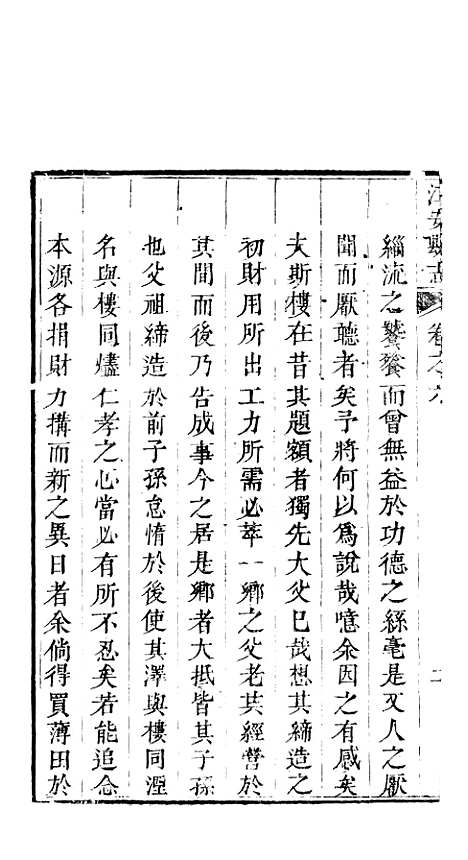 江安縣志 卷之六
緇流之饕餮而曾無益於功德之絲毫是又人之厭
聞而厭聽者矣予將何以爲說哉噫余因之有感矣
夫斯樓在昔其題額者獨先大父已哉想其締造之
初財用所出工力所需必萃一鄉之父老其經營於
其間而後乃告成事今之居是鄉者大抵皆其子孫
也父祖締造於前子孫怠惰於後使其澤與樓同湮
名與樓同燼仁孝之心當必有所不忍矣若能追念
本源各捐財力搆而新之異日者余倘得買薄田於